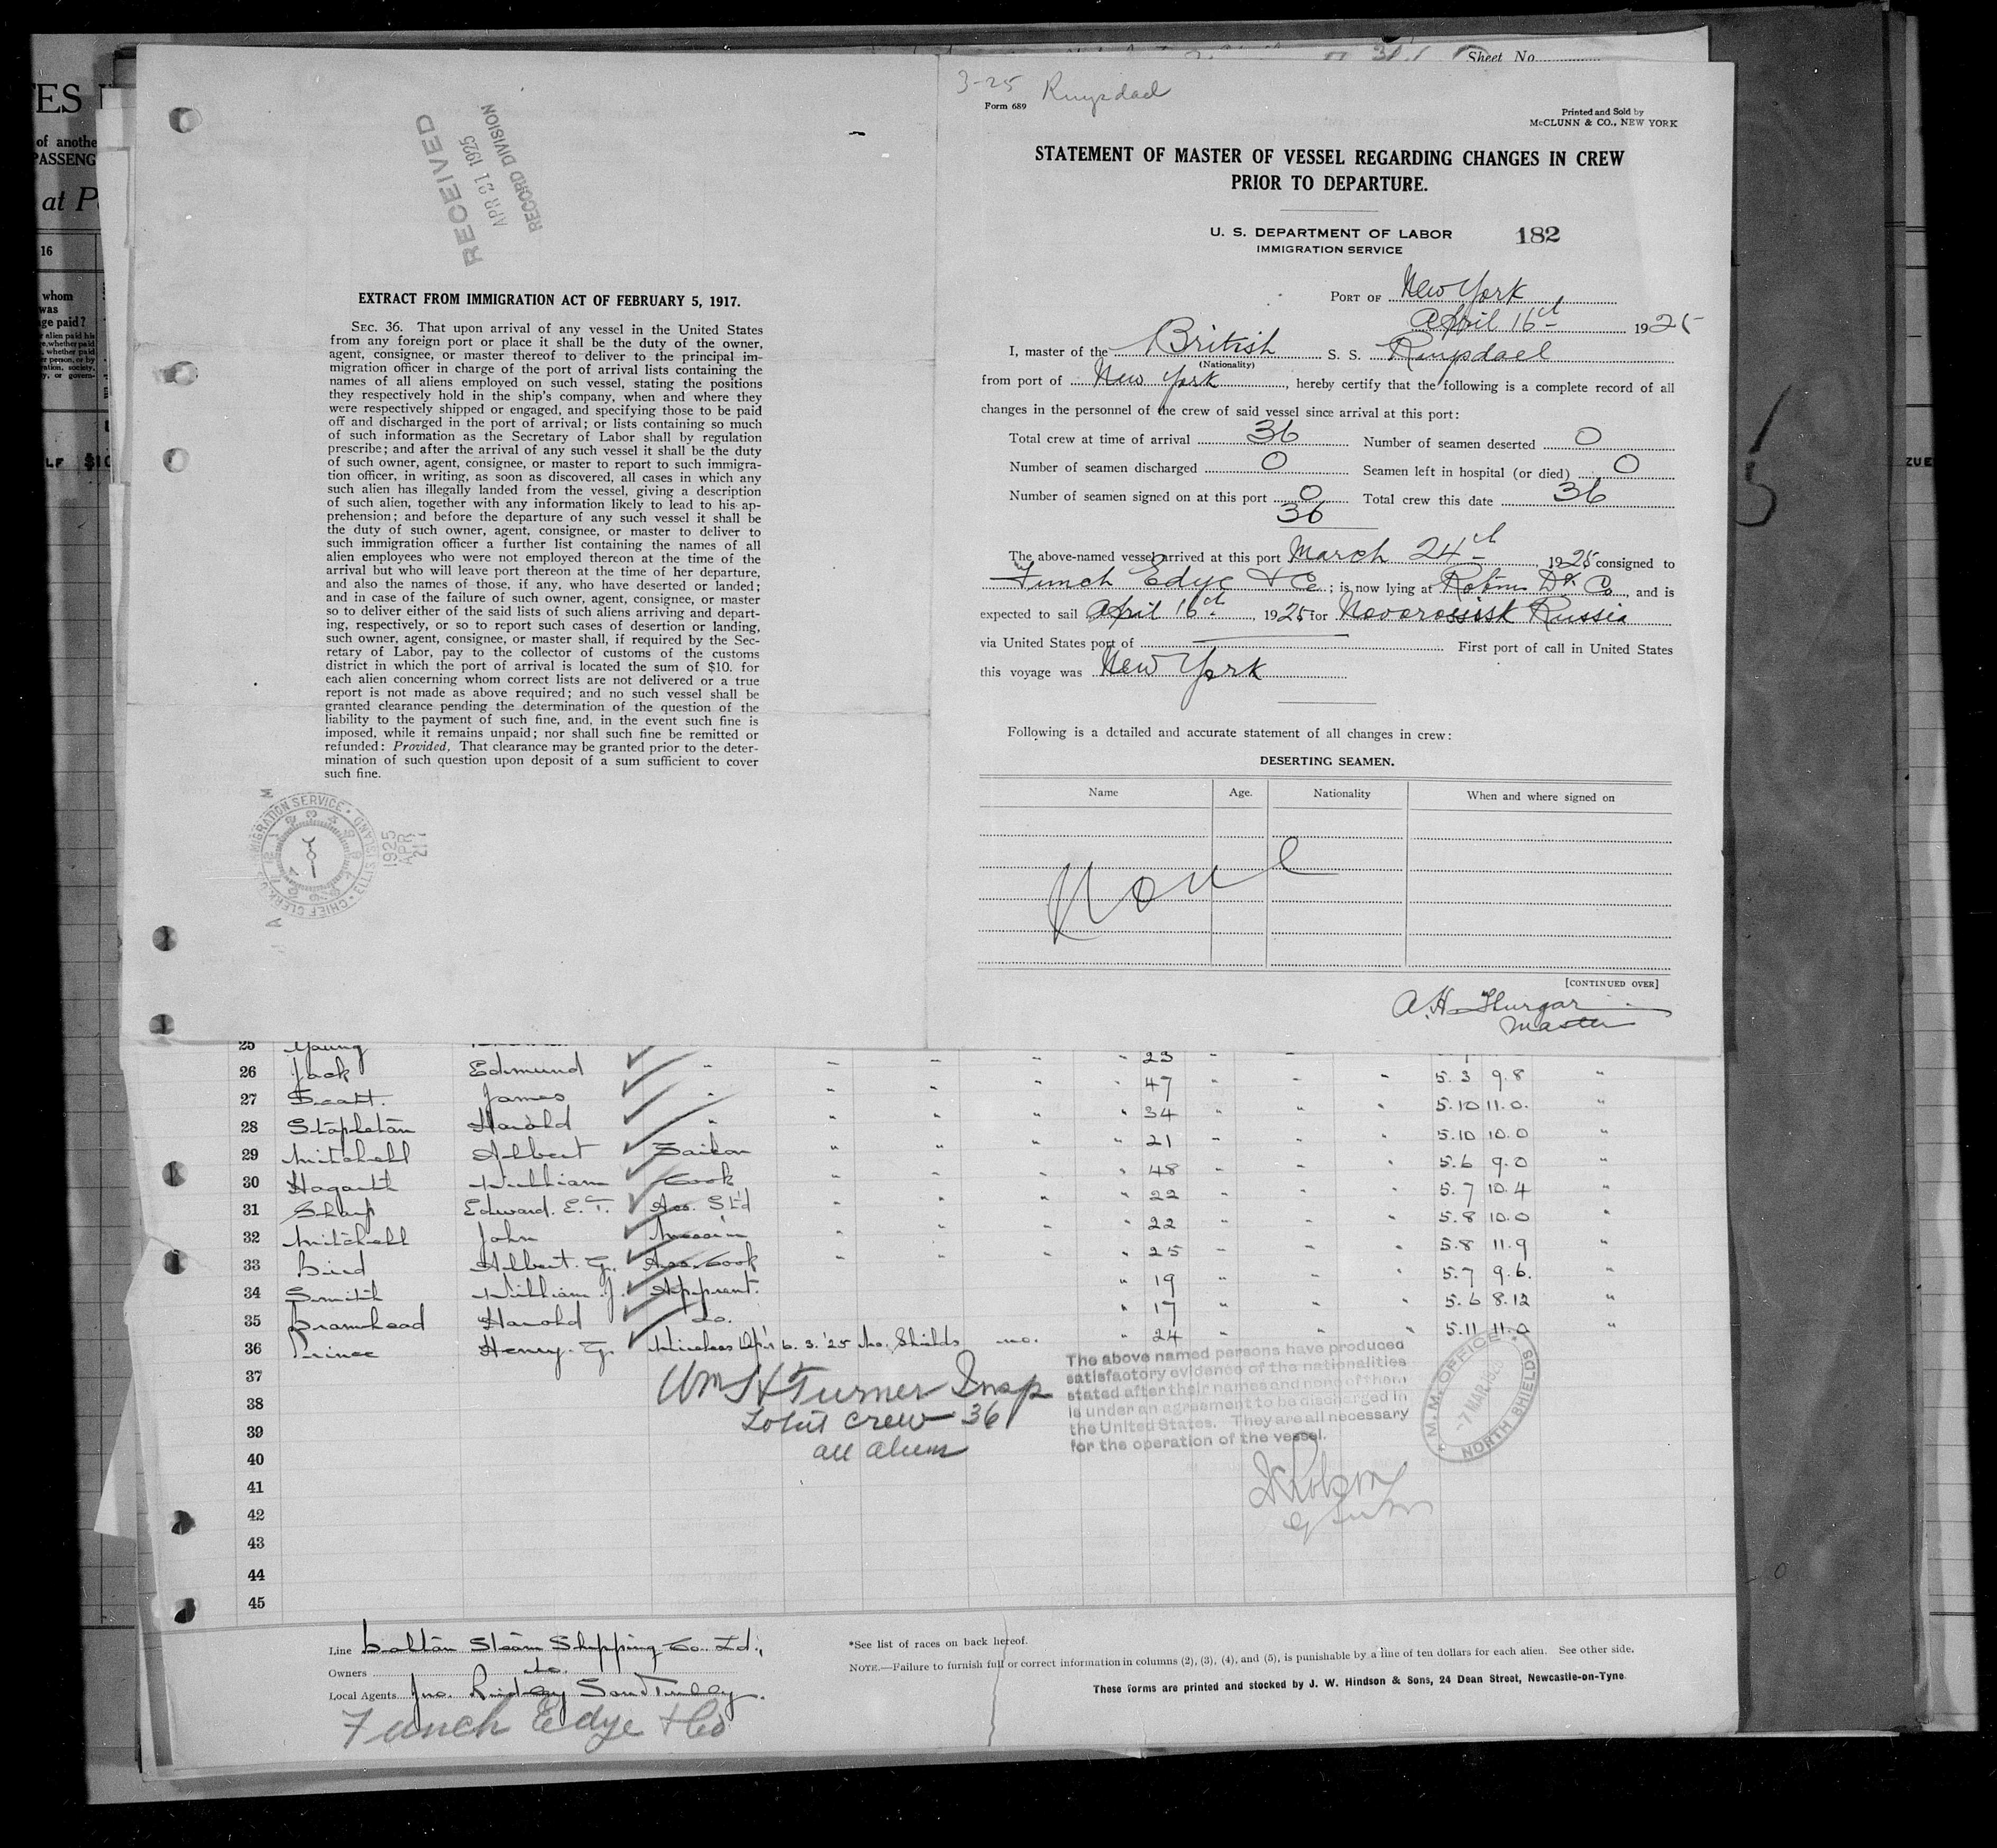 Sheet No.
ES
of anothe
PASSENG
at P
16
whom
was
ge paid?
LF $10
ZUE
RECEIVED
APR 21 1925
RECORD DIVISION
EXTRACT FROM IMMIGRATION ACT OF FEBRUARY 5, 1917.
SEC. 36. That upon arrival of any vessel in the United States
from any foreign port or place it shall be the duty of the owner,
agent, consignee, or master thereof to deliver to the principal im-
migration officer in charge of the port of arrival lists containing the
names of all aliens employed on such vessel, stating the positions
they respectively hold in the ship's company, when and where they
were respectively shipped or engaged, and specifying those to be paid
off and discharged in the port of arrival; or lists containing so much
of such information as the Secretary of Labor shall by regulation
prescribe; and after the arrival of any such vessel it shall be the duty
of such owner, agent, consignee, or master to report to such immigra-
tion officer, in writing, as soon as discovered, all cases in which any
such alien has illegally landed from the vessel, giving a description
of such alien, together with any information likely to lead to his ap-
prehension; and before the departure of any such vessel it shall be
the duty of such owner, agent, consignee, or master to deliver to
such immigration officer a further list containing the names of all
alien employees who were not employed thereon at the time of the
arrival but who will leave port thereon at the time of her departure,
and also the names of those, if any, who have deserted or landed;
and in case of the failure of such owner, agent, consignee, or master
so to deliver either of the said lists of such aliens arriving and depart-
ing, respectively, or so to report such cases of desertion or landing,
such owner, agent, consignee, or master shall, if required by the Sec-
retary of Labor, pay to the collector of customs of the customs
district in which the port of arrival is located the sum of $10. for
each alien concerning whom correct lists are not delivered or a true
report is not made as above required; and no such vessel shall be
granted clearance pending the determination of the question of the
liability to the payment of such fine, and, in the event such fine is
imposed, while it remains unpaid; nor shall such fine be remitted or
refunded: Provided, That clearance may be granted prior to the deter-
mination of such question upon deposit of a sum sufficient to cover
such fine.
IMMIGRATION SERVICE · ELLIS ISLAND · CHIEF CLERK
1925
APR
21
3-25 Ruysdael
Form 689
Printed and Sold by
McCLUNN & CO., NEW YORK
STATEMENT OF MASTER OF VESSEL REGARDING CHANGES IN CREW
PRIOR TO DEPARTURE.
U. S. DEPARTMENT OF LABOR 182
IMMIGRATION SERVICE
PORT OF New York
April 16th 1925
I, master of the British S. S. Ruysdael
(Nationality)
from port of New York, hereby certify that the following is a complete record of all
changes in the personnel of the crew of said vessel since arrival at this port:
Total crew at time of arrival 36 Number of seamen deserted 0
Number of seamen discharged 0 Seamen left in hospital (or died) 0
Number of seamen signed on at this port 0 Total crew this date 36
36
The above-named vessel arrived at this port March 24th, 1925 consigned to
Funch Edye & Co; is now lying at Robins D.D. Co, and is
expected to sail April 16th, 1925 for Novorossisk Russia
via United States port of First port of call in United States
this voyage was New York
Following is a detailed and accurate statement of all changes in crew:
DESERTING SEAMEN.
Name Age. Nationality When and where signed on
None
[CONTINUED OVER]
A. H. Thurgar
Master
25 Young 23
26 Jack Edmund " 47 5.3 9.8 "
27 Scott. James " 34 5.10 11.0. "
28 Stapleton Harold " 21 5.10 10.0 "
29 Mitchell Albert Sailor 48 5.6 9.0 "
30 Hogarth William Cook 22 5.7 10.4 "
31 Sharp Edward. E. T. Ass. Std 22 5.8 10.0 "
32 Mitchell John Messrm 25 5.8 11.9 "
33 Bird Albert. G. Ass. Cook 19 5.7 9.6. "
34 Smith William. J. Apprent. 17 5.6 8.12 "
35 Bramhead Harold do. 24 5.11 11.0 "
36 Prince Henry. G. Wireless Op'r 6. 3. '25 No. Shields no.
37
38
39
40
41
42
43
44
45
Wm H Turner Insp
Total crew 36
all aliens
The above named persons have produced
satisfactory evidence of the nationalities
stated after their names and none of them
is under an agreement to be discharged in
the United States. They are all necessary
for the operation of the vessel.
M. M. OFFICE
-7 MAR 1925
NORTH SHIELDS
Line Bolton Steam Shipping Co. Ld.,
Owners do.
Local Agents Jno. Ridley Son & Tully.
Funch Edye & Co
*See list of races on back hereof.
NOTE.—Failure to furnish full or correct information in columns (2), (3), (4), and (5), is punishable by a fine of ten dollars for each alien. See other side.
These forms are printed and stocked by J. W. Hindson & Sons, 24 Dean Street, Newcastle-on-Tyne